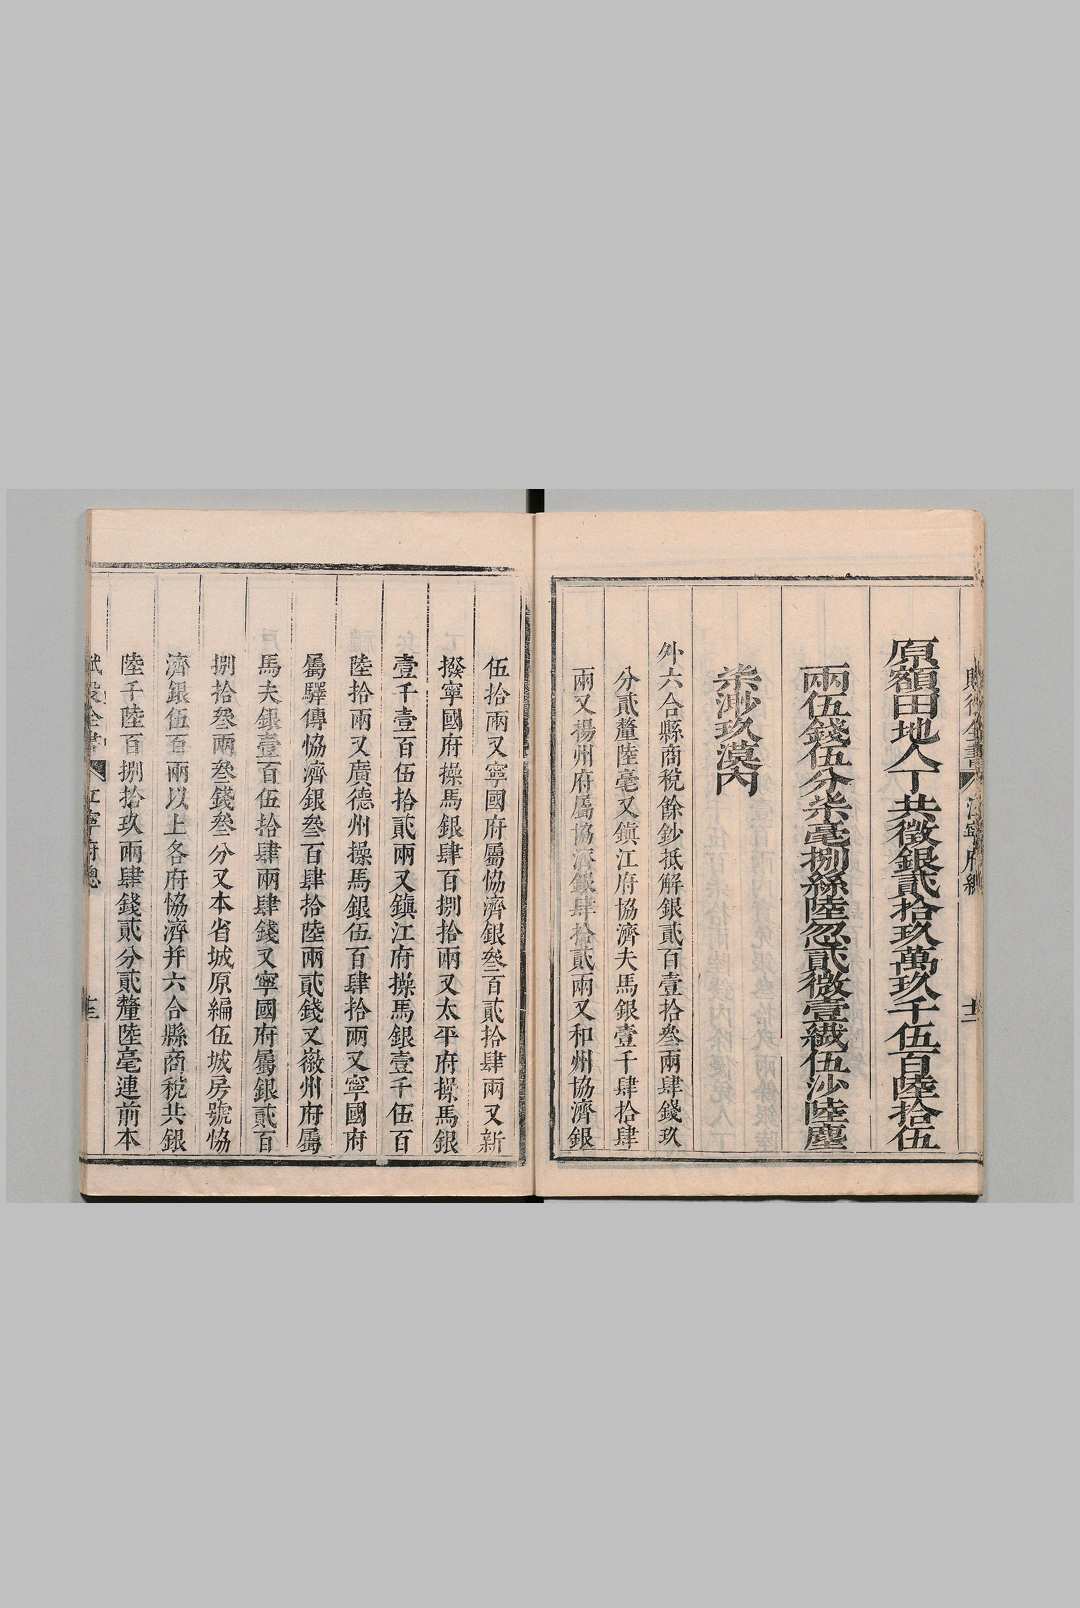 原額田地人丁共徵銀貳拾玖萬玖千伍百陸拾伍
兩伍錢伍分柒毫捌絲陸忽貳微壹纖伍沙陸塵
柒渺玖漠內
外六合縣商稅餘鈔抵解銀貳百壹拾叄兩肆錢玖
分貳釐陸毫又鎮江府協濟夫馬銀壹千肆拾肆
兩又揚州府屬協濟銀肆拾貳兩又和州協濟銀
伍拾兩又寧國府屬協濟銀叄百貳拾肆兩又新
撥寧國府操馬銀肆百捌拾兩又太平府操馬銀
壹千壹百伍拾貳兩又鎮江府操馬銀壹千伍百
陸拾兩又廣德州操馬銀伍百肆拾兩又寧國府
屬驛傳協濟銀叄百肆拾陸兩貳錢又徽州府屬
馬夫銀壹百伍拾肆兩肆錢又寧國府屬銀貳百
捌拾叄兩叄錢叄分又本省城原編伍城房號協
濟銀伍百兩以上各府協濟并六合縣商稅共銀
陸千陸百捌拾玖兩肆錢貳分貳釐陸毫連前本
賦役全書 江寧府總